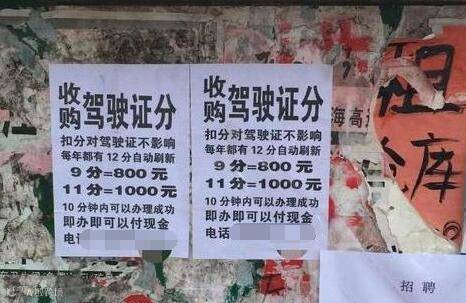 收购驾驶证分
扣分对驾驶证不影响
每年都有12分自动刷新
9分=800元
11分=1000元
10分钟内可以办理成功
即办即可以付现金
电话
收购驾驶证分
扣分对驾驶证不影响
每年都有12分自动刷新
9分=800元
11分=1000元
10分钟内可以办理成功
即办即可以付现金
电话
海高
租
库
招聘